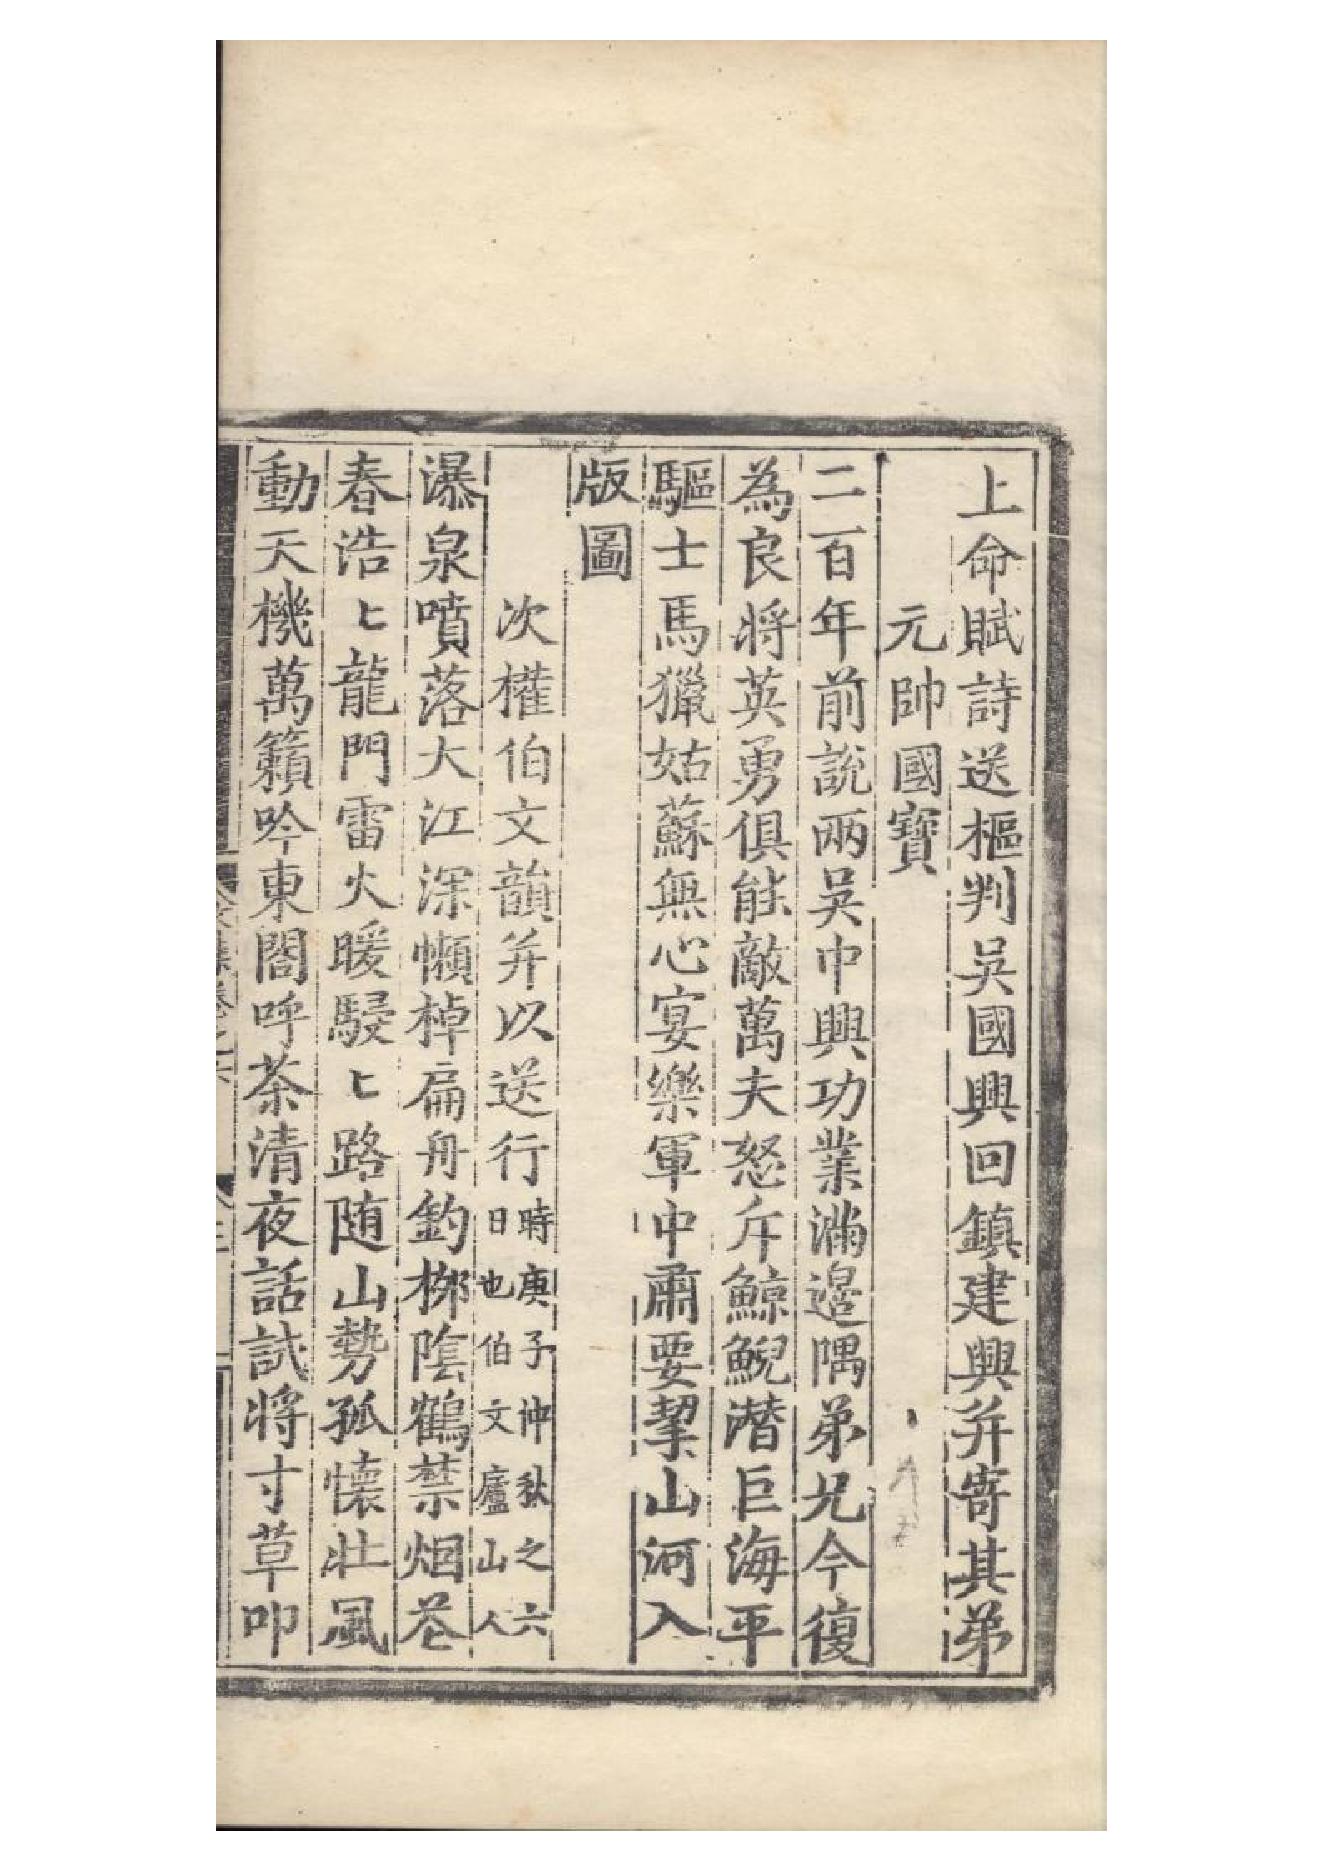 上命賦詩送樞判吳國興回鎮建興并寄其弟
元帥國寶
二百年前說兩吳中興功業滿邉隅弟兄今復
為良將英勇俱能敵萬夫怒斥鯨鯢潛巨海平
驅士馬獵姑蘇無心宴樂軍中肅要挈山河入
版圖
次權伯文韻并以送行時庚子沖秋之六
日也伯文廬山人
瀑泉噴落大江深懶棹扁舟釣柳陰鶴禁烟花
春浩〻龍門雷火暖駸〻路随山勢孤懷壯風
動天機萬籟吟東閣呼茶清夜話試將寸草叩